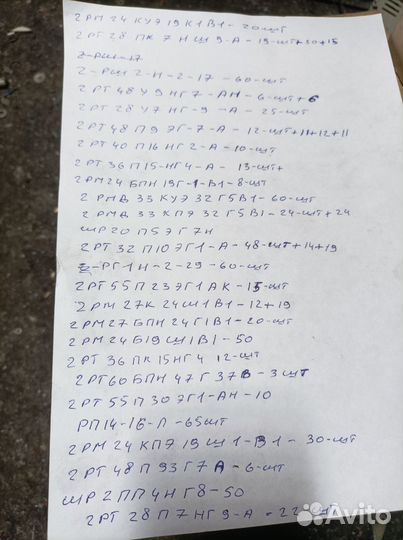 2РМ 24 КУЭ 19 К1В1 - 20-шт
2РТ 28 ПК 7Н Ш 9-А - 19-шт+50+15
2-РШ-17
2-РШ 2-Н-2-17 - 60-шт
2РТ 48 У 9 НГ 7-АН - 6-шт+6
2РТ 28 У7 НГ-9-А - 25-шт
2РТ 48 П9 ЭГ-7-А - 12-шт+11+12+11
2РТ 40 П16 НГ 2-А - 10-шт
2РТ 36 П15-НГ4-А - 13-шт+
2РМ24 БПН 19Г-1-В1-8-шт
2РМД 33 КУЭ 32 Г5В1-60-шт
2РМД 33 КПЭ 32 Г5В1-24-шт+24
ШР20 П5 ЭГ 7Н
2РТ 32 П10ЭГ1-А-48-шт+14+19
2-РГ1Н-2-29-60-шт
2РТ 55 П 23 ЭГ1 АК - 15-шт
2РМ 27К 24Ш1В1-12+19
2РМ27БПН 24Г1В1-20-шт
2РМ 24 Б19 Ш1В1-50
2РТ 36 ПК 15НГ4 12-шт
2РТ60БПН 47 Г 37В-3шт
2РТ 55 П 30 ЭГ1-АН-10
РП14-16-Л-65шт
2РМ 24 КПЭ 19Ш 1-В1-30-шт
2РТ 48 П 93 Г7А-6-шт
ШР 2ПП4НГ8-50
2РТ 28 П 7НГ 9-А - 22-шт
Avito